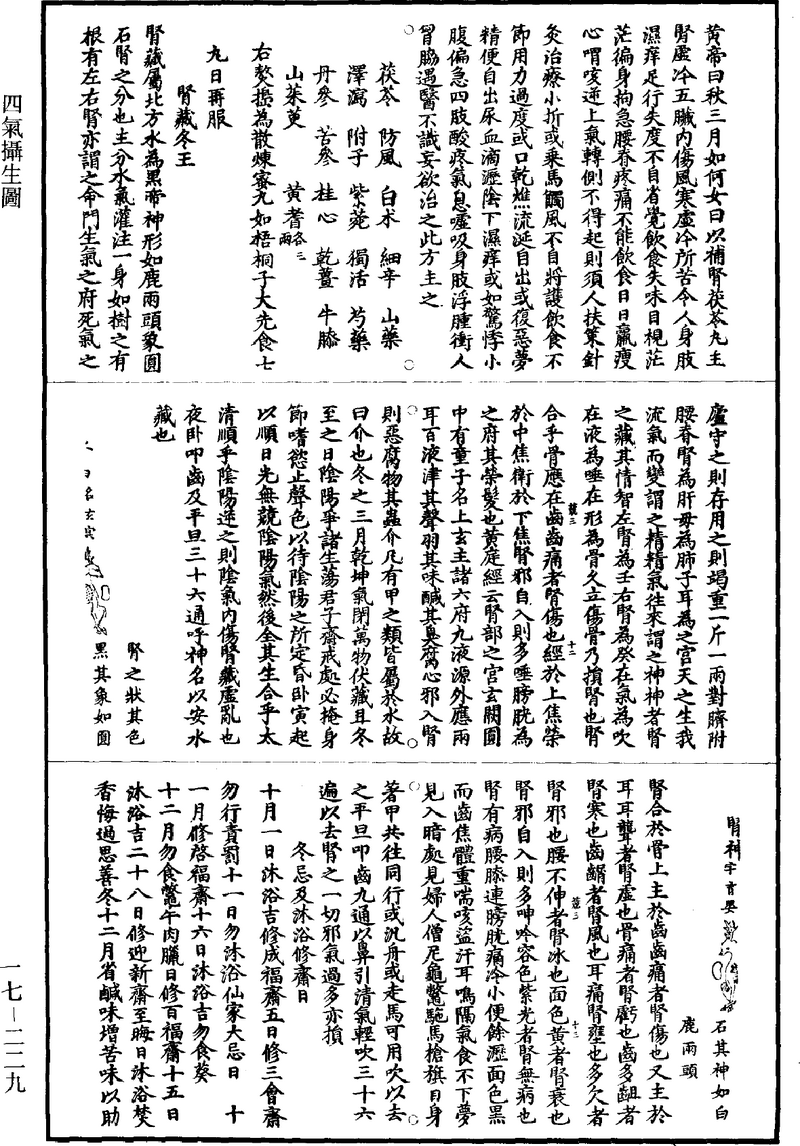 黃帝曰秋三月如何女曰以補腎茯苓丸主
腎虛冷五臟內傷風寒虛冷所苦令人身肢
濕痒足行失度不自省覺飲食失味目視茫
茫徧身拘急腰脊疼痛不能飲食日日羸瘦
心喟咳逆上氣轉側不得起則須人扶策針
灸治療小折或乘馬觸風不自將護飲食不
節用力過度或口乾燋流涎自出或復惡夢
精便自出尿血滴瀝陰下濕痒或如驚悸小
腹偏急四肢酸疼氣息噓吸身肢浮腫衝人
胷脇遇醫不識妄欲治之此方主之
茯苓 防風 白术 細辛 山藥
澤瀉 附子 紫菀 獨活 芍藥
丹參 苦參 桂心 乾薑 牛膝
山茱萸 黃耆各三兩
右䥶搗為散煉蜜丸如梧桐子大先食七
九日再服
腎藏冬王
腎藏屬北方水為黑帝神形如鹿兩頭象圓
石腎之分也主分水氣灌注一身如樹之有
根有左右腎亦謂之命門生氣之府死氣之
廬守之則存用之則竭重一斤一兩對臍附
腰脊腎為肝母為肺子耳為之宮天之生我
流氣而變謂之精精氣往來謂之神神者腎
之藏其情智左腎為壬右腎為癸在氣為吹
在液為唾在形為骨久立傷骨乃損腎也腎
合乎骨應在齒齒痛者腎傷也經於上焦榮
於中焦衛於下焦腎邪自入則多唾膀胱為
之府其榮髮也黃庭經云腎部之宮玄闕圓
中有童子名上玄主諸六府九液源外應兩
耳百液津其聲羽其味鹹其臭腐心邪入腎
則惡腐物其蟲介凡有甲之類皆屬於水故
曰介也冬之三月乾坤氣閉萬物伏藏且冬
至之日陰陽爭諸生蕩君子齋戒處必掩身
節嗜慾止聲色以待陰陽之所定昏卧寅起
以順日光無競陰陽氣然後全其生合乎太
清順乎陰陽逆之則陰氣內傷腎藏虛亂也
夜卧叩齒及平旦三十六通呼神名以安水
藏也
腎之狀其色
黑其象如圓
腎神字育嬰
石其神如白
鹿兩頭
腎合於骨上主於齒齒痛者腎傷也又主於
耳耳聾者腎虛也骨痛者腎虧也齒多齟者
腎寒也齒齵者腎風也耳痛腎壅也多欠者
腎邪也腰不伸者腎冰也面色黃者腎衰也
腎邪自入則多呻吟容色紫光者腎無病也
腎有病腰膝連膀胱痛冷小便餘瀝面色黑
而齒焦體重喘咳盜汗耳鳴隔氣食不下夢
見入暗處見婦人僧尼龜鱉駞馬槍旗自身
著甲共往同行或汎舟或走馬可用吹以去
之平旦叩齒九通以鼻引清氣輕吹三十六
遍以去腎之一切邪氣過多亦損
冬忌及沐浴修齋日
十月一日沐浴吉修成福齋五日修三會齋
勿行責罰十一日勿沐浴仙家大忌日 十
一月修啓福齋十六日沐浴吉勿食葵
十二月勿食鱉牛肉臘日修百福齋十五日
沐浴吉二十八日修迎新齋至晦日沐浴焚
香悔過思善冬十二月省鹹味增苦味以助
四氣攝生圖
一七－二二九